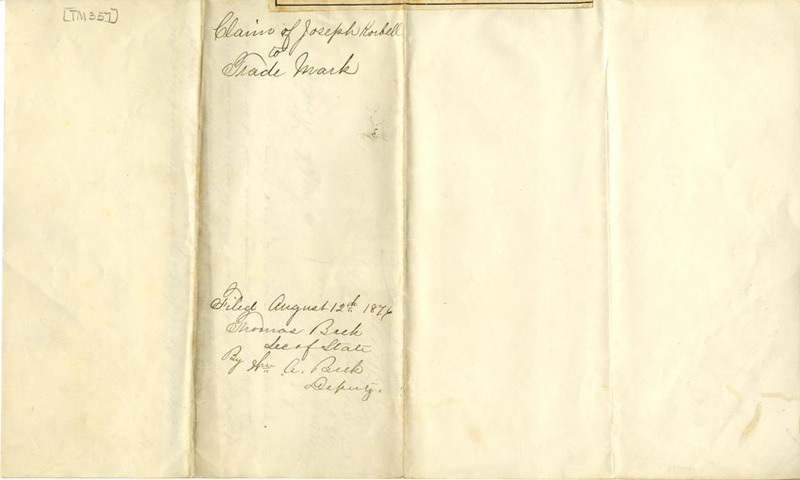 [TM 357]
Claim of Joseph Korbell
to
Trade Mark
Filed August 12th 1876
Thomas Beck
Sec of State
By Wm A. Beck
Deputy.